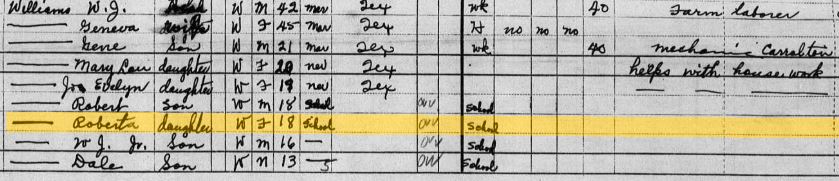 Williams W. J. Head W M 42 mar Tex wk 40 Farm laborer
—— Geneva wife W F 45 mar Tex H no no no
—— Gene Son W M 21 mar Tex wk 40 mechanic Carrolton
—— Mary Lou daughter W F 20 nev Tex helps with house work
—— Jo Evelyn daughter W F 19 nev Tex — — —
—— Robert Son W M 18 School ovv School
—— Roberta daughter W F 18 School ovv School
—— W J. Jr. Son W M 16 — ovv School
—— Dale Son W M 13 — ovv School